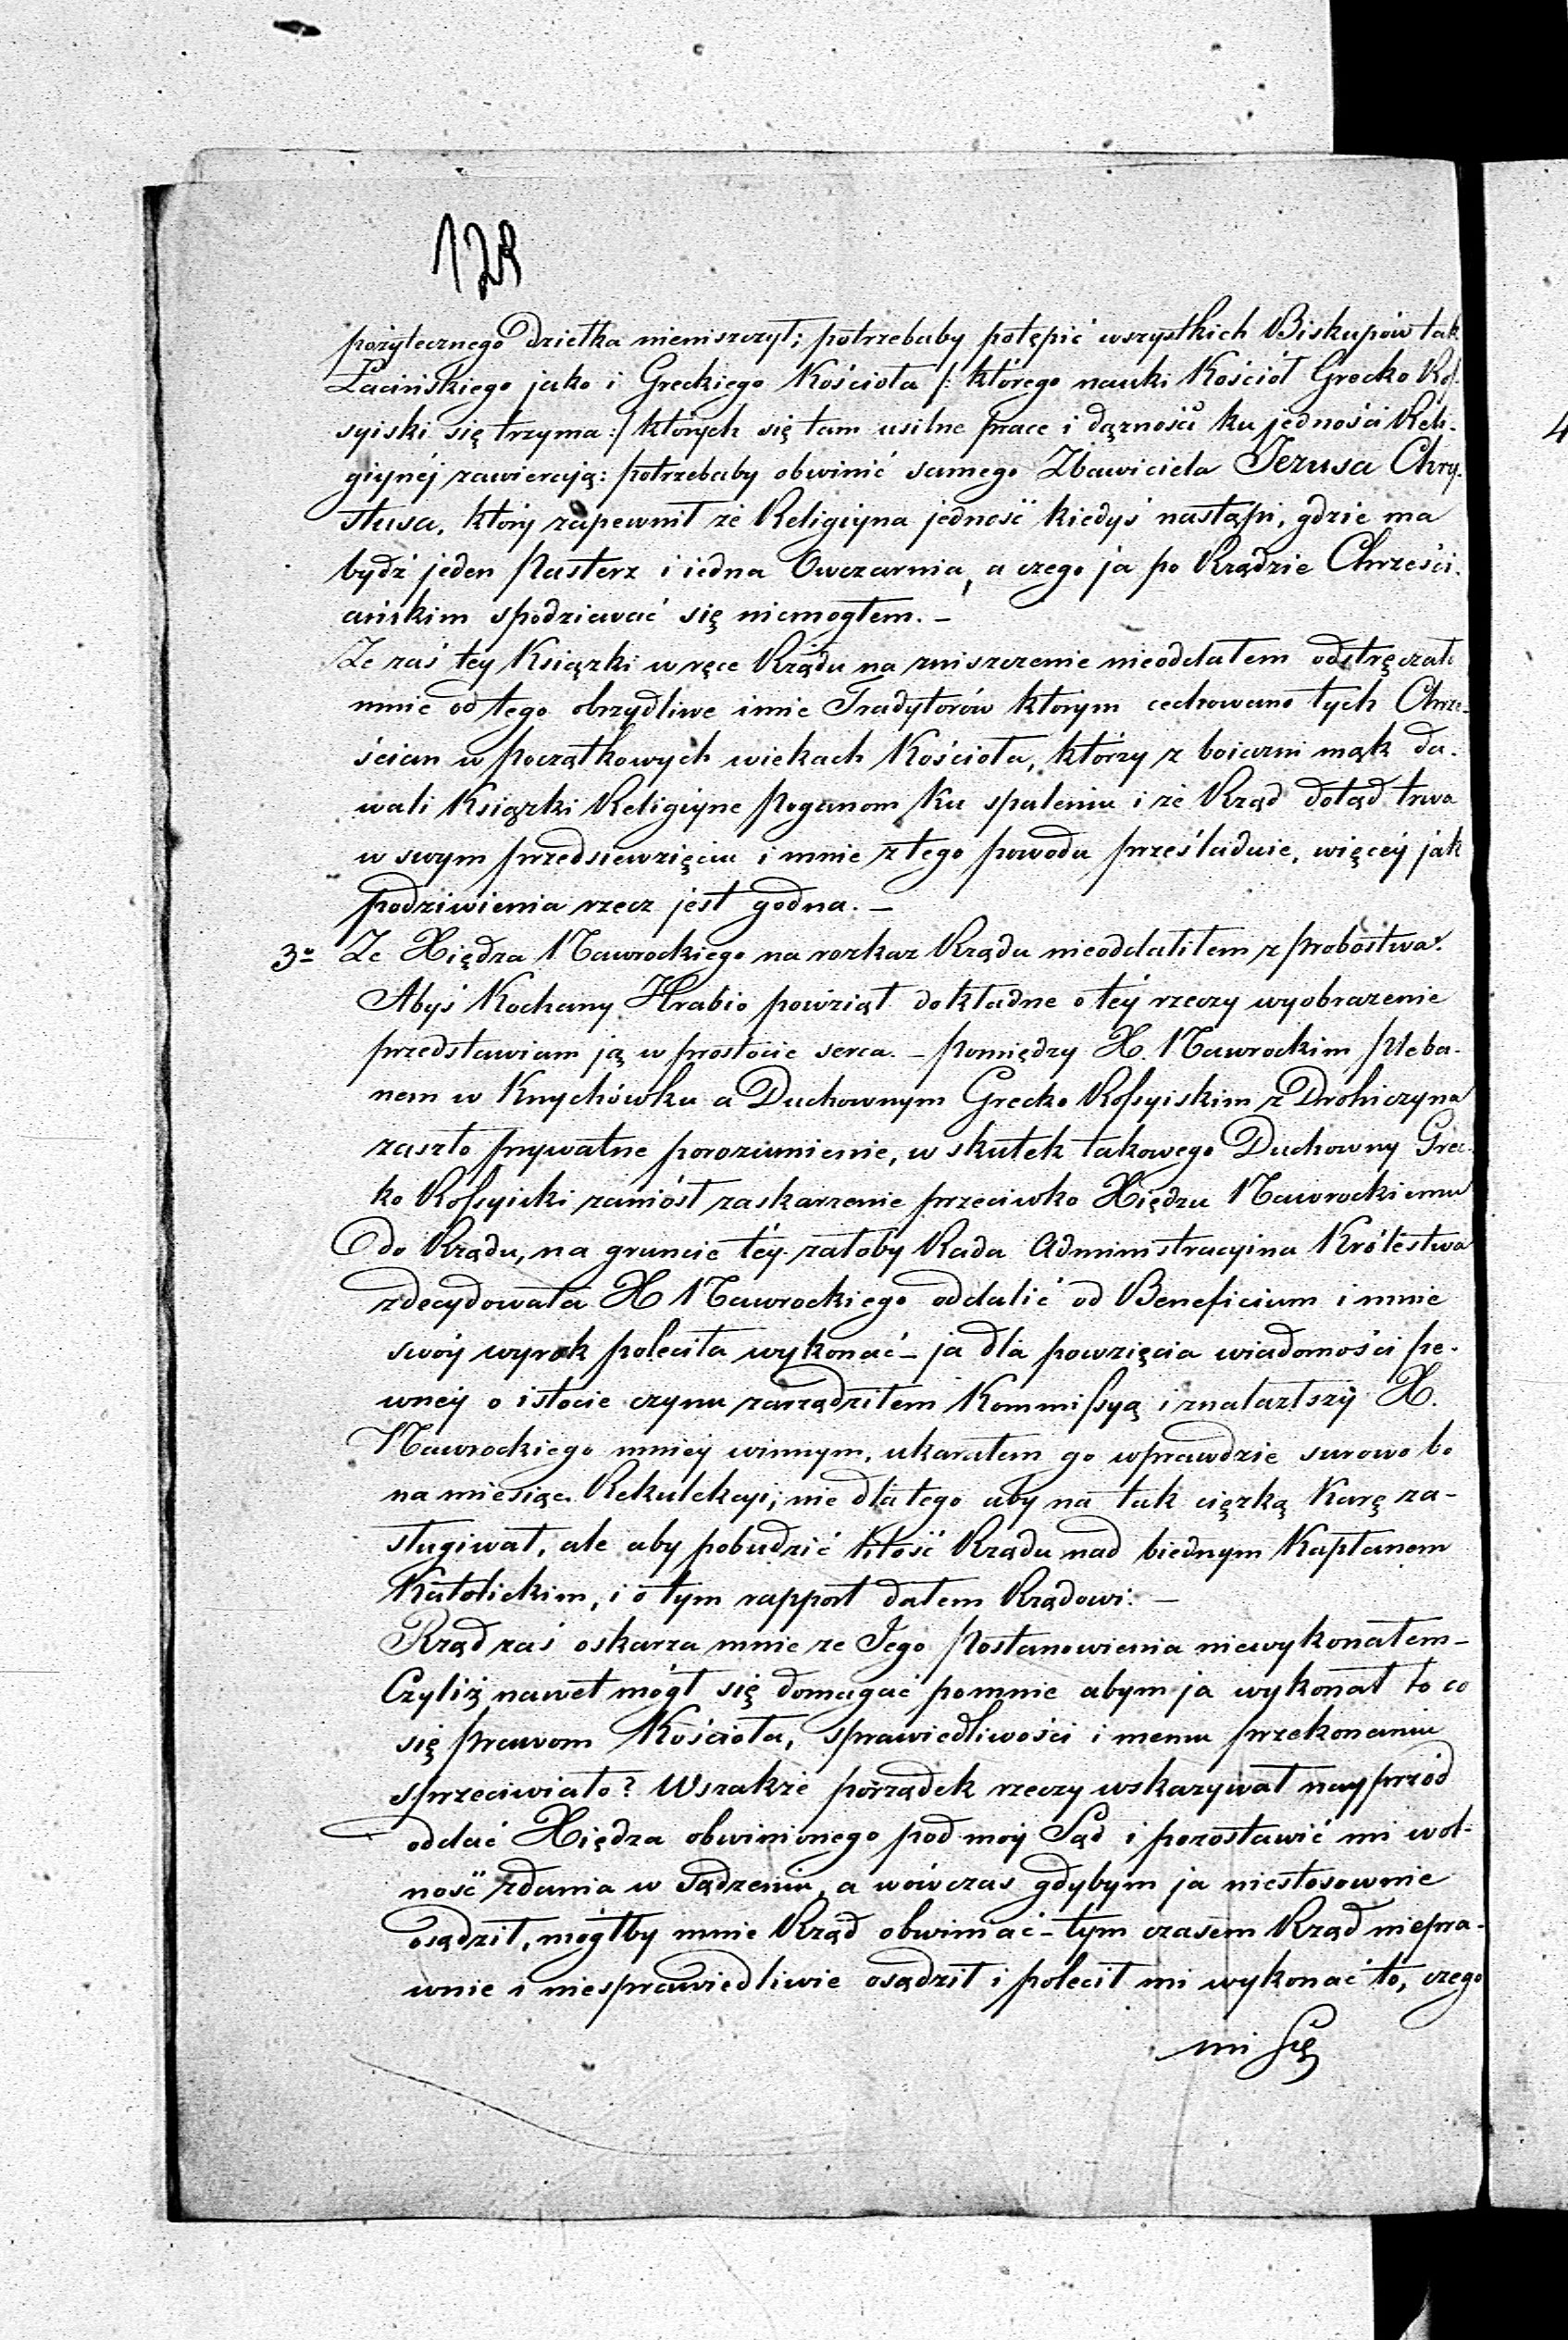 128
pożytecznego dziełka nieniszczył; potrzebaby potępić wszystkich Biskupów tak
Łacińskiego jako i Greckiego Kościoła /: którego nauki Kościół Grecko Ros-
syiski się trzyma :/ których się tam usilne prace i dążności ku jedności Reli-
giynéj zawierają: potrzebaby obwinić samego Zbawiciela Jezusa Chry-
stusa, który zapewnił że Religiyna jedność kiedyś nastąpi, gdzie ma
bydź jeden Pasterz i iedna Owczarnia, a czego ja po Rządzie Chrześci-
ańskim spodziewać się niemogłem. –
Że zaś tey Książki w ręce Rządu na zniszczenie nieoddałem odstręczało
mnie od tego obrzydliwe imie Tradytorów którym cechowano tych Chrze-
ścian w początkowych wiekach Kościoła, którzy z boiazni mąk da-
wali Książki Religiyne Poganom ku spaleniu i że Rząd dotąd trwa
w swym przedsiewzięciu i mnie z tego powodu prześladuie, więcéy jak
podziwienia rzecz jest godna. –
3o Że Xiędza Nawrockiego na rozkaz Rządu nieoddaliłem z probostwa.
Abyś Kochany Hrabio powziął dokładne o téy rzeczy wyobrażenie
przedstawiam ją w prostocie serca. – Pomiędzy X. Nawrockim Pleba-
nem w Knychówku a Duchownym Grecko Rossyiskim z Drohiczyna
zaszło prywatne porozumienie, w skutek takowego Duchowny Grec-
ko Rossyiski zaniósł zaskarżenie przeciwko Xiędzu Nawrockiemu
do Rządu, na gruncie téy żałoby Rada Administracyina Królestwa
zdecydowała X Nawrockiego oddalić od Beneficium i mnie
swóy wyrok poleciła wykonać – ja dla powzięcia wiadomości pe-
wnéy o istocie czynu zarządziłem Kommissyą i znalazłszy X.
Nawrockiego mniéy winnym, ukarałem go wprawdzie surowo bo
na miesiąc Rekolekcyi; nie dla tego aby na tak ciężką karę za-
sługiwał, ale aby pobudzić litość Rządu nad biednym Kapłanem
Katolickim, i o tym rapport dałem Rządowi. –
Rząd zaś oskarża mnie że Jego Postanowienia niewykonałem –
Czyliż nawet mógł się domagać pomnie abym ja wykonał to co
się prawom Kościoła, sprawiedliwości i memu przekonaniu
sprzeciwiało? Wszakże porządek rzeczy wskazywał nayprzód
oddać Xiędza obwinionego pod móy Sąd i pozostawić mi wol-
ność zdania w sądzeniu, a wówczas gdybym ja niestosownie
osądził, mógłby mnie Rząd obwiniać – tym czasem Rząd niepra-
wnie i niesprawiedliwie osądził i polecił mi wykonać to, czego
mi się